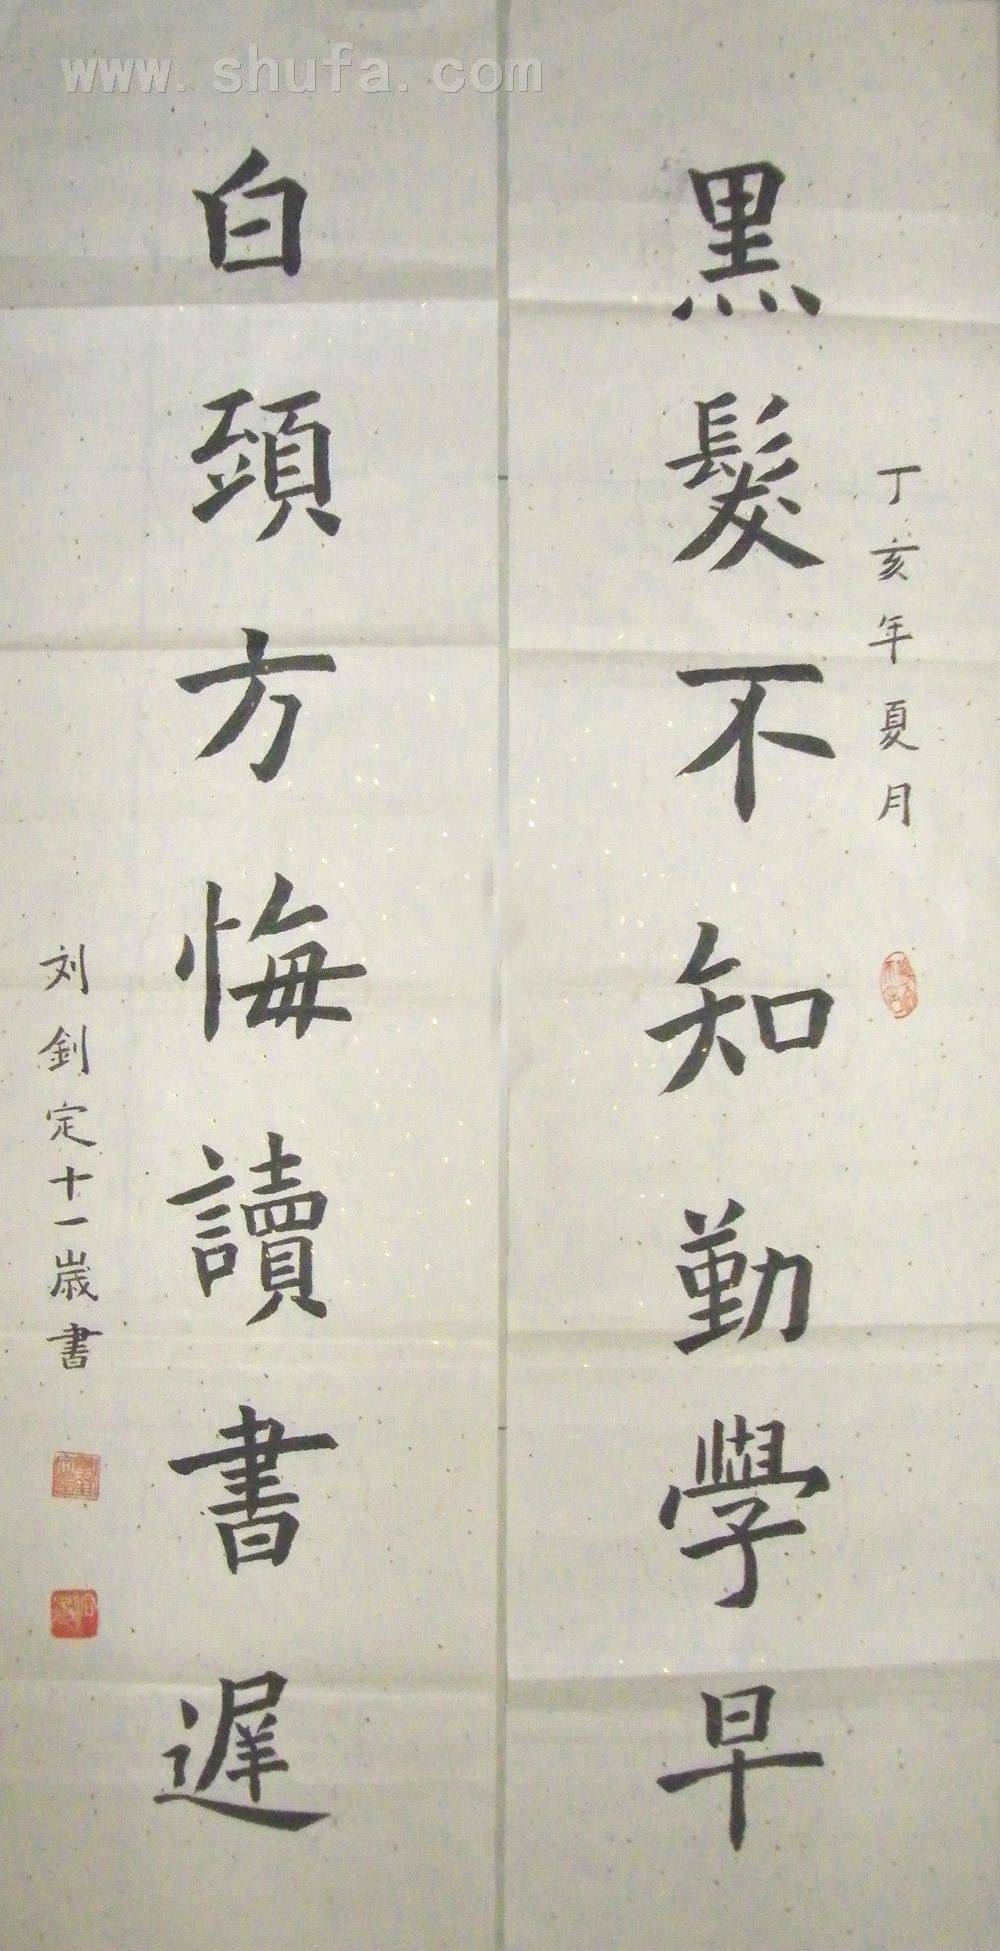 www.shufa.com
丁亥年夏月
黑髮不知勤學早
白頭方悔讀書遲
刘釗定十一歲書